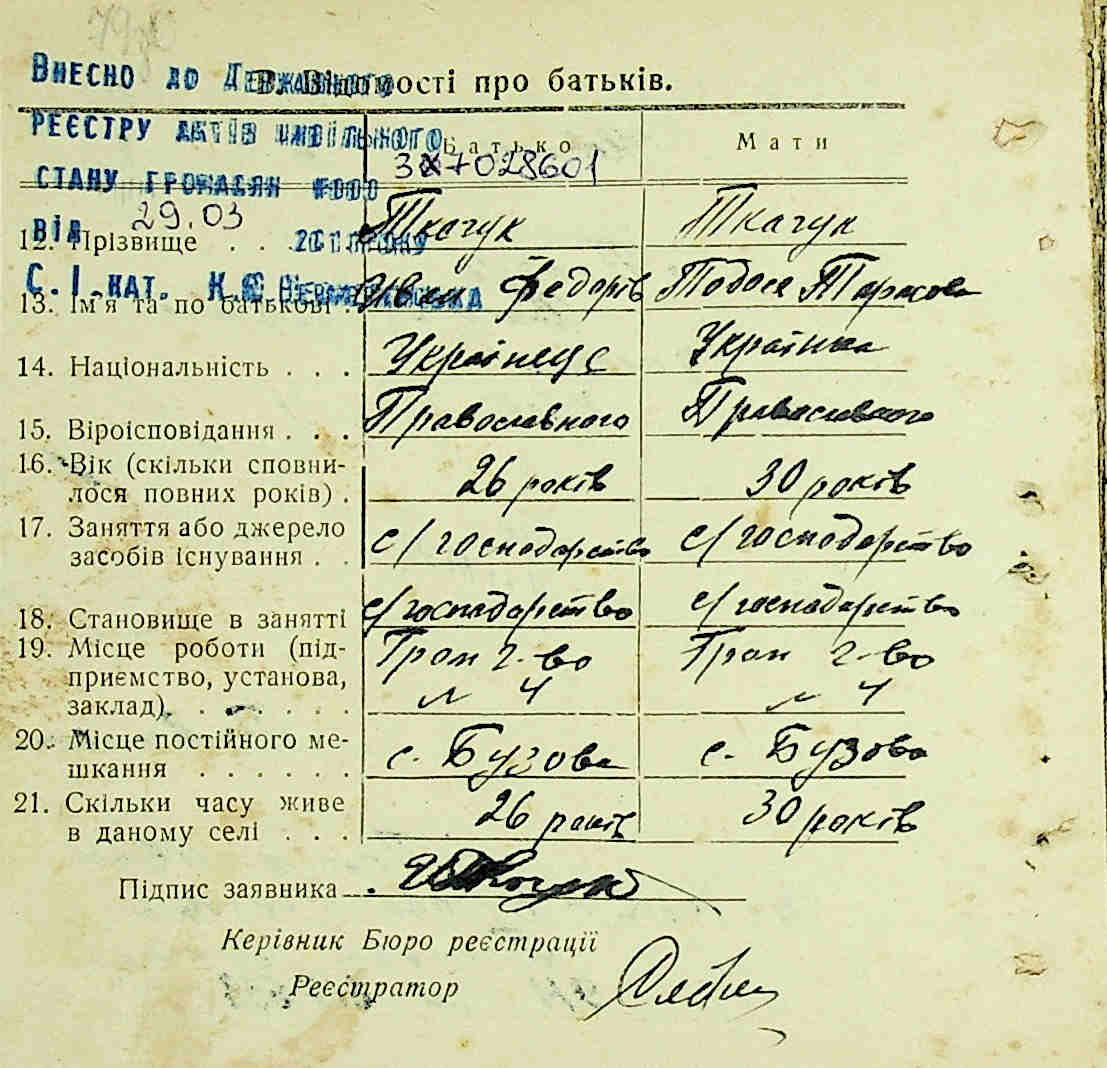 Внесно до Державного
В. Відомості про батьків.
реєстру актів цивільного
Батько Мати
стану громадян #000
3X7028601
від 29.03
12. Прізвище . . . Ткачук Ткачук
С. І. кат. К.Є
13. Ім'я та по батькові . Федорів Тодося Тарасова
14. Національність . . . Українець Українка
15. Віроісповідання . . . Православного Православного
16. Вік (скільки сповни-
лося повних років) . 26 років 30 років
17. Заняття або джерело
засобів існування . . с/господарство с/господарство
18. Становище в занятті с/господарство с/господарство
19. Місце роботи (під-
приємство, установа,
заклад) . . . . . . № 4 № 4
20. Місце постійного ме-
шкання . . . . . . с. Бузова с. Бузова
21. Скільки часу живе
в даному селі . . . 26 років 30 років
Підпис заявника
Керівник Бюро реєстрації
Реєстратор